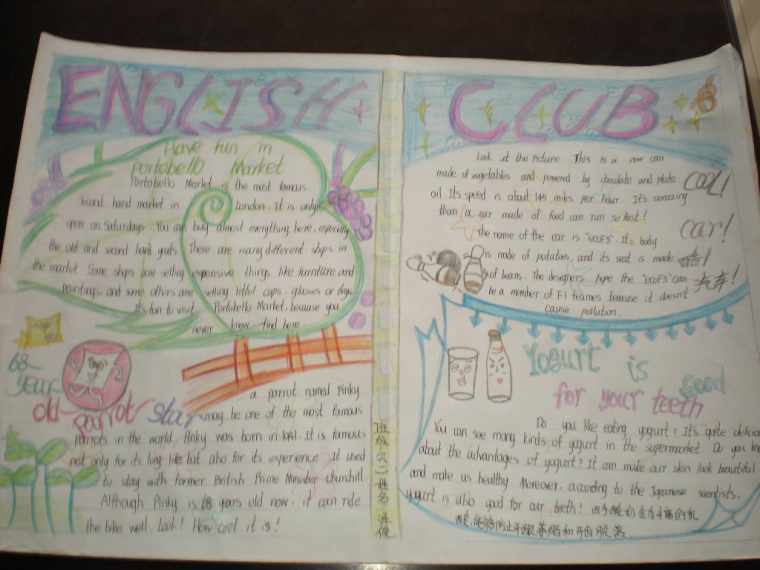 ENGLISH
Have fun in
Portobello Market
Portobello Market is the most famous
second hand market in London. It is only
open on Saturdays. You can buy almost everything here, especially
the old and second hand goods. There are many different ships in
the market. Some ships are selling expensive things like furniture and
paintings and some others are selling little caps, glasses or
It's fun to visit Portobello Market, because you
never know find here
68-
year-
old parrot star
a parrot named Pinky
may be one of the most famous
parrots in the world. Pinky was born in It is famous
not only for its long life but also for its experience. It used
to stay with former British Prime Minister Churchill
Although Pinky is 68 years old now, it can ride
the bike well. Look! How cool it is!
班级 六二 姓名
CLUB
Look at the picture. This is a new car
made of vegetables and powered by chocolate and
oil. Its speed is about 145 miles per hour. It's amazing
than a car made of food can run so fast!
The name of the car is Its body
is made of potatoes, and its seat is made
of beans. The designers hope the can
be a member of F1 because it doesn't
cause pollution.
COOL!
car!
酷!
汽车!
Yogurt is good
for your teeth
Do you like eating yogurt? It's quite delicious
You can see many kinds of yogurt in the supermarket. Do you know
about the advantages of yogurt? It can make our skin look beautiful
and make us healthy. Moreover, according to the Japanese scientists,
yogurt is also good for our teeth!